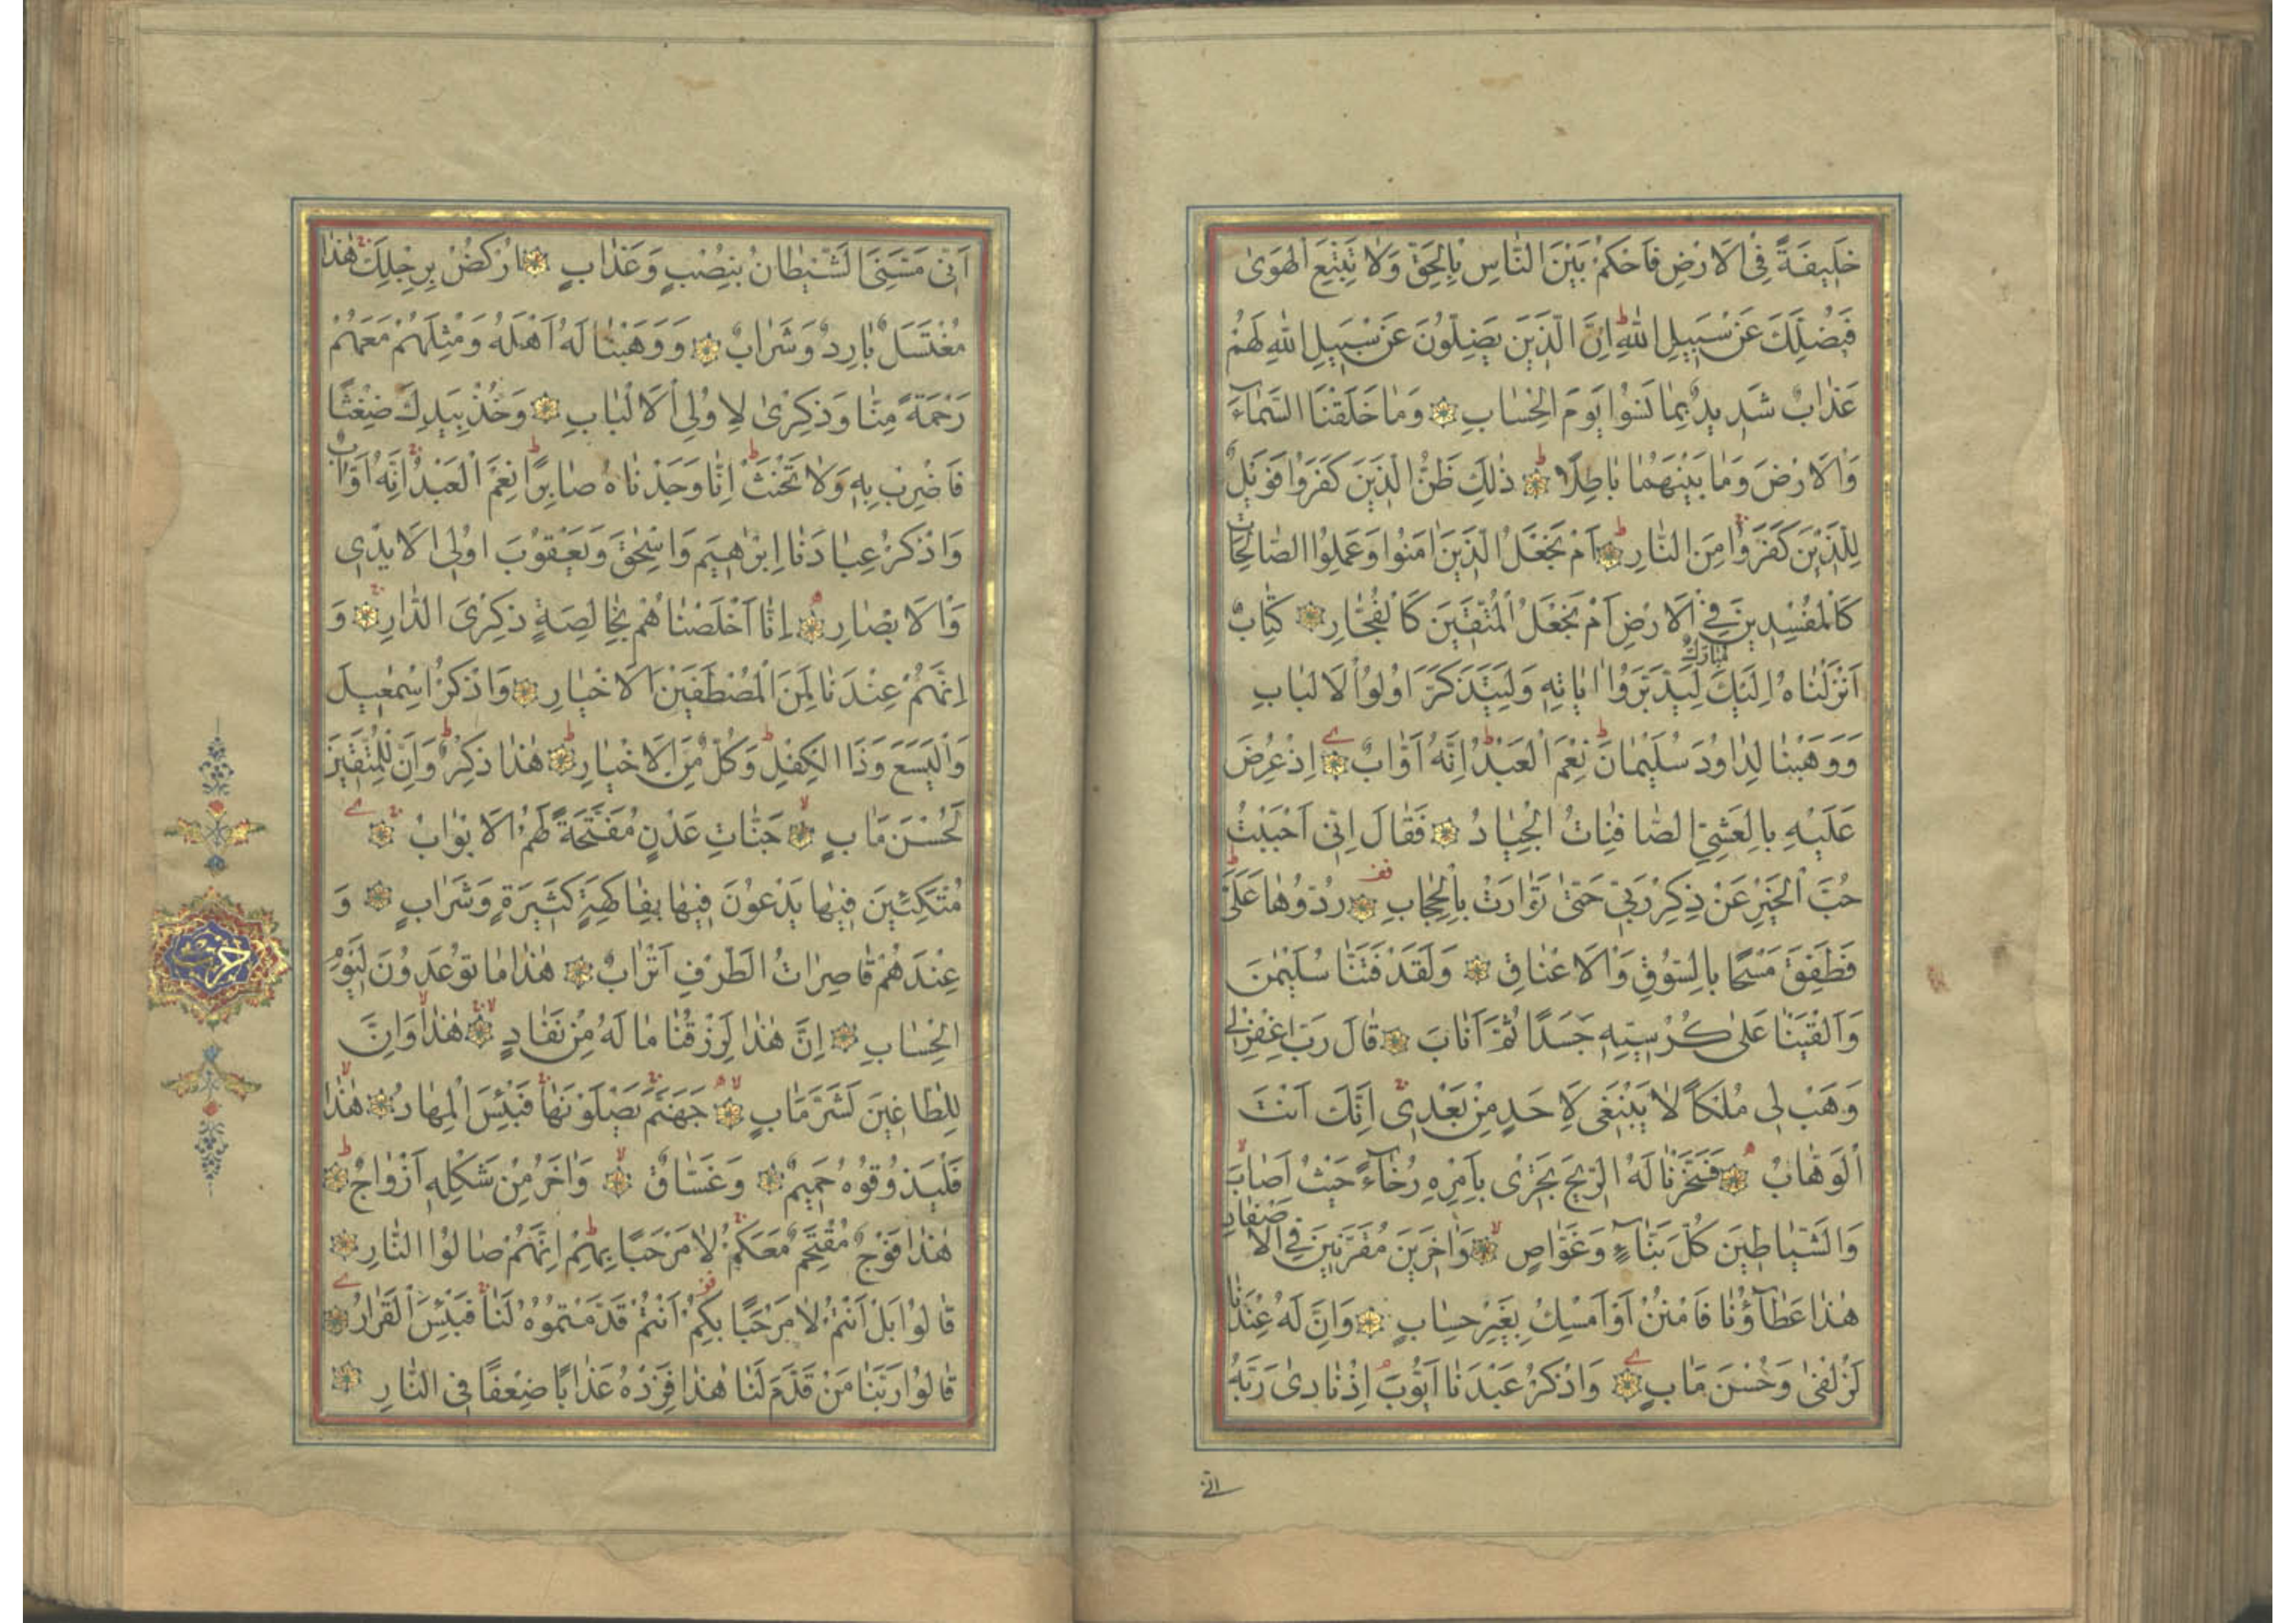 خَلِيفَةً فِي الْاَرْضِ فَاحْكُمْ بَيْنَ النَّاسِ بِالْحَقِّ وَلَا تَتَّبِعِ الْهَوٰى
فَيُضِلَّكَ عَنْ سَبِيلِ اللّٰهِ اِنَّ الَّذِينَ يَضِلُّونَ عَنْ سَبِيلِ اللّٰهِ لَهُمْ
عَذَابٌ شَدِيدٌ بِمَا نَسُوا يَوْمَ الْحِسَابِ وَمَا خَلَقْنَا السَّمَاءَ
وَالْاَرْضَ وَمَا بَيْنَهُمَا بَاطِلًا ذٰلِكَ ظَنُّ الَّذِينَ كَفَرُوا فَوَيْلٌ
لِلَّذِينَ كَفَرُوا مِنَ النَّارِ اَمْ نَجْعَلُ الَّذِينَ اٰمَنُوا وَعَمِلُوا الصَّالِحَاتِ
كَالْمُفْسِدِينَ فِي الْاَرْضِ اَمْ نَجْعَلُ الْمُتَّقِينَ كَالْفُجَّارِ كِتَابٌ
اَنْزَلْنَاهُ اِلَيْكَ مُبَارَكٌ لِيَدَّبَّرُوا اٰيَاتِهِ وَلِيَتَذَكَّرَ اُولُوا الْاَلْبَابِ
وَوَهَبْنَا لِدَاوُدَ سُلَيْمَانَ نِعْمَ الْعَبْدُ اِنَّهُ اَوَّابٌ اِذْ عُرِضَ
عَلَيْهِ بِالْعَشِيِّ الصَّافِنَاتُ الْجِيَادُ فَقَالَ اِنِّي اَحْبَبْتُ
حُبَّ الْخَيْرِ عَنْ ذِكْرِ رَبِّي حَتّٰى تَوَارَتْ بِالْحِجَابِ رُدُّوهَا عَلَيَّ
فَطَفِقَ مَسْحًا بِالسُّوقِ وَالْاَعْنَاقِ وَلَقَدْ فَتَنَّا سُلَيْمٰنَ
وَاَلْقَيْنَا عَلٰى كُرْسِيِّهِ جَسَدًا ثُمَّ اَنَابَ قَالَ رَبِّ اغْفِرْ لِي
وَهَبْ لِي مُلْكًا لَا يَنْبَغِي لِاَحَدٍ مِنْ بَعْدِي اِنَّكَ اَنْتَ
الْوَهَّابُ فَسَخَّرْنَا لَهُ الرِّيحَ تَجْرِي بِاَمْرِهِ رُخَاءً حَيْثُ اَصَابَ
وَالشَّيَاطِينَ كُلَّ بَنَّاءٍ وَغَوَّاصٍ وَاٰخَرِينَ مُقَرَّنِينَ فِي الْاَصْفَادِ
هٰذَا عَطَاؤُنَا فَامْنُنْ اَوْ اَمْسِكْ بِغَيْرِ حِسَابٍ وَاِنَّ لَهُ عِنْدَنَا
لَزُلْفٰى وَحُسْنَ مَاٰبٍ وَاذْكُرْ عَبْدَنَا اَيُّوبَ اِذْ نَادٰى رَبَّهُ
اَنِّي
اَنِّي مَسَّنِيَ الشَّيْطَانُ بِنُصْبٍ وَعَذَابٍ اُرْكُضْ بِرِجْلِكَ هٰذَا
مُغْتَسَلٌ بَارِدٌ وَشَرَابٌ وَوَهَبْنَا لَهُ اَهْلَهُ وَمِثْلَهُمْ مَعَهُمْ
رَحْمَةً مِنَّا وَذِكْرٰى لِاُولِي الْاَلْبَابِ وَخُذْ بِيَدِكَ ضِغْثًا
فَاضْرِبْ بِهِ وَلَا تَحْنَثْ اِنَّا وَجَدْنَاهُ صَابِرًا نِعْمَ الْعَبْدُ اِنَّهُ اَوَّابٌ
وَاذْكُرْ عِبَادَنَا اِبْرٰهِيمَ وَاِسْحٰقَ وَيَعْقُوبَ اُولِي الْاَيْدِي
وَالْاَبْصَارِ اِنَّا اَخْلَصْنَاهُمْ بِخَالِصَةٍ ذِكْرَى الدَّارِ وَ
اِنَّهُمْ عِنْدَنَا لَمِنَ الْمُصْطَفَيْنَ الْاَخْيَارِ وَاذْكُرْ اِسْمٰعِيلَ
وَالْيَسَعَ وَذَا الْكِفْلِ وَكُلٌّ مِنَ الْاَخْيَارِ هٰذَا ذِكْرٌ وَاِنَّ لِلْمُتَّقِينَ
لَحُسْنَ مَاٰبٍ جَنَّاتِ عَدْنٍ مُفَتَّحَةً لَهُمُ الْاَبْوَابُ
مُتَّكِئِينَ فِيهَا يَدْعُونَ فِيهَا بِفَاكِهَةٍ كَثِيرَةٍ وَشَرَابٍ وَ
عِنْدَهُمْ قَاصِرَاتُ الطَّرْفِ اَتْرَابٌ هٰذَا مَا تُوعَدُونَ لِيَوْمِ
الْحِسَابِ اِنَّ هٰذَا لَرِزْقُنَا مَا لَهُ مِنْ نَفَادٍ هٰذَا وَاِنَّ
لِلطَّاغِينَ لَشَرَّ مَاٰبٍ جَهَنَّمَ يَصْلَوْنَهَا فَبِئْسَ الْمِهَادُ هٰذَا
فَلْيَذُوقُوهُ حَمِيمٌ وَغَسَّاقٌ وَاٰخَرُ مِنْ شَكْلِهِ اَزْوَاجٌ
هٰذَا فَوْجٌ مُقْتَحِمٌ مَعَكُمْ لَا مَرْحَبًا بِهِمْ اِنَّهُمْ صَالُوا النَّارِ
قَالُوا بَلْ اَنْتُمْ لَا مَرْحَبًا بِكُمْ اَنْتُمْ قَدَّمْتُمُوهُ لَنَا فَبِئْسَ الْقَرَارُ
قَالُوا رَبَّنَا مَنْ قَدَّمَ لَنَا هٰذَا فَزِدْهُ عَذَابًا ضِعْفًا فِي النَّارِ
حزب